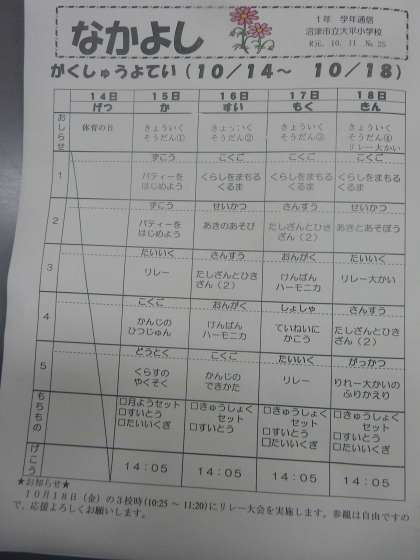 なかよし
1年 学年通信
沼津市立大平小学校
R元. 10. 11 No.25
がくしゅうよてい(10/14~ 10/18)
14日 15日 16日 17日 18日
げつ か すい もく きん
おしらせ
体育の日
きょういく そうだん①
きょういく そうだん②
きょういく そうだん③
きょういく そうだん④ リレー大かい
1
ずこう こくご こくご こくご
パティーを はじめよう
くらしをまもる くるま
くらしをまもる くるま
くらしをまもる くるま
2
ずこう せいかつ さんすう せいかつ
パティーを はじめよう
あきのあそび
たしざんとひき ざん(2)
あきとあそぼう
3
たいいく さんすう おんがく たいいく
リレー
たしざんとひき ざん(2)
けんばん ハーモニカ
リレー大かい
4
こくご おんがく しょしゃ さんすう
かんじの ひつじゅん
けんばん ハーモニカ
ていねいに かこう
たしざんとひき ざん(2)
5
どうとく こくご たいいく がっかつ
くらすの やくそく
かんじの できかた
リレー
りれー大かいの ふりかえり
もちもの
□月ようセット □すいとう □たいいくぎ
□きゅうしょく セット □すいとう
□きゅうしょく セット □すいとう □たいいくぎ
□きゅうしょく セット □すいとう □たいいくぎ
げこう
14:05 14:05 14:05 14:05
★お知らせ★
10月18日(金)の3校時(10:25~11:20)にリレー大会を実施します。参観は自由ですの
で、応援よろしくお願いします。